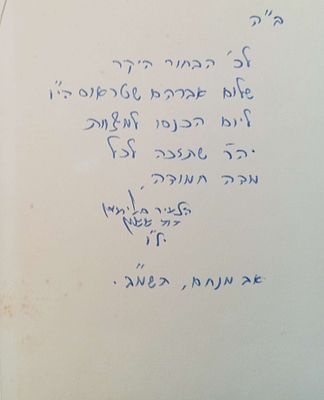 ב"ה
לכ' הבחור היקר
שלום אברהם שטראוס הי"ו
ליום הכנסו למצוות
יה"ר שתזכה לכל
מדה חמודה,
הצעיר
אב מנחם, תשמ"ב.